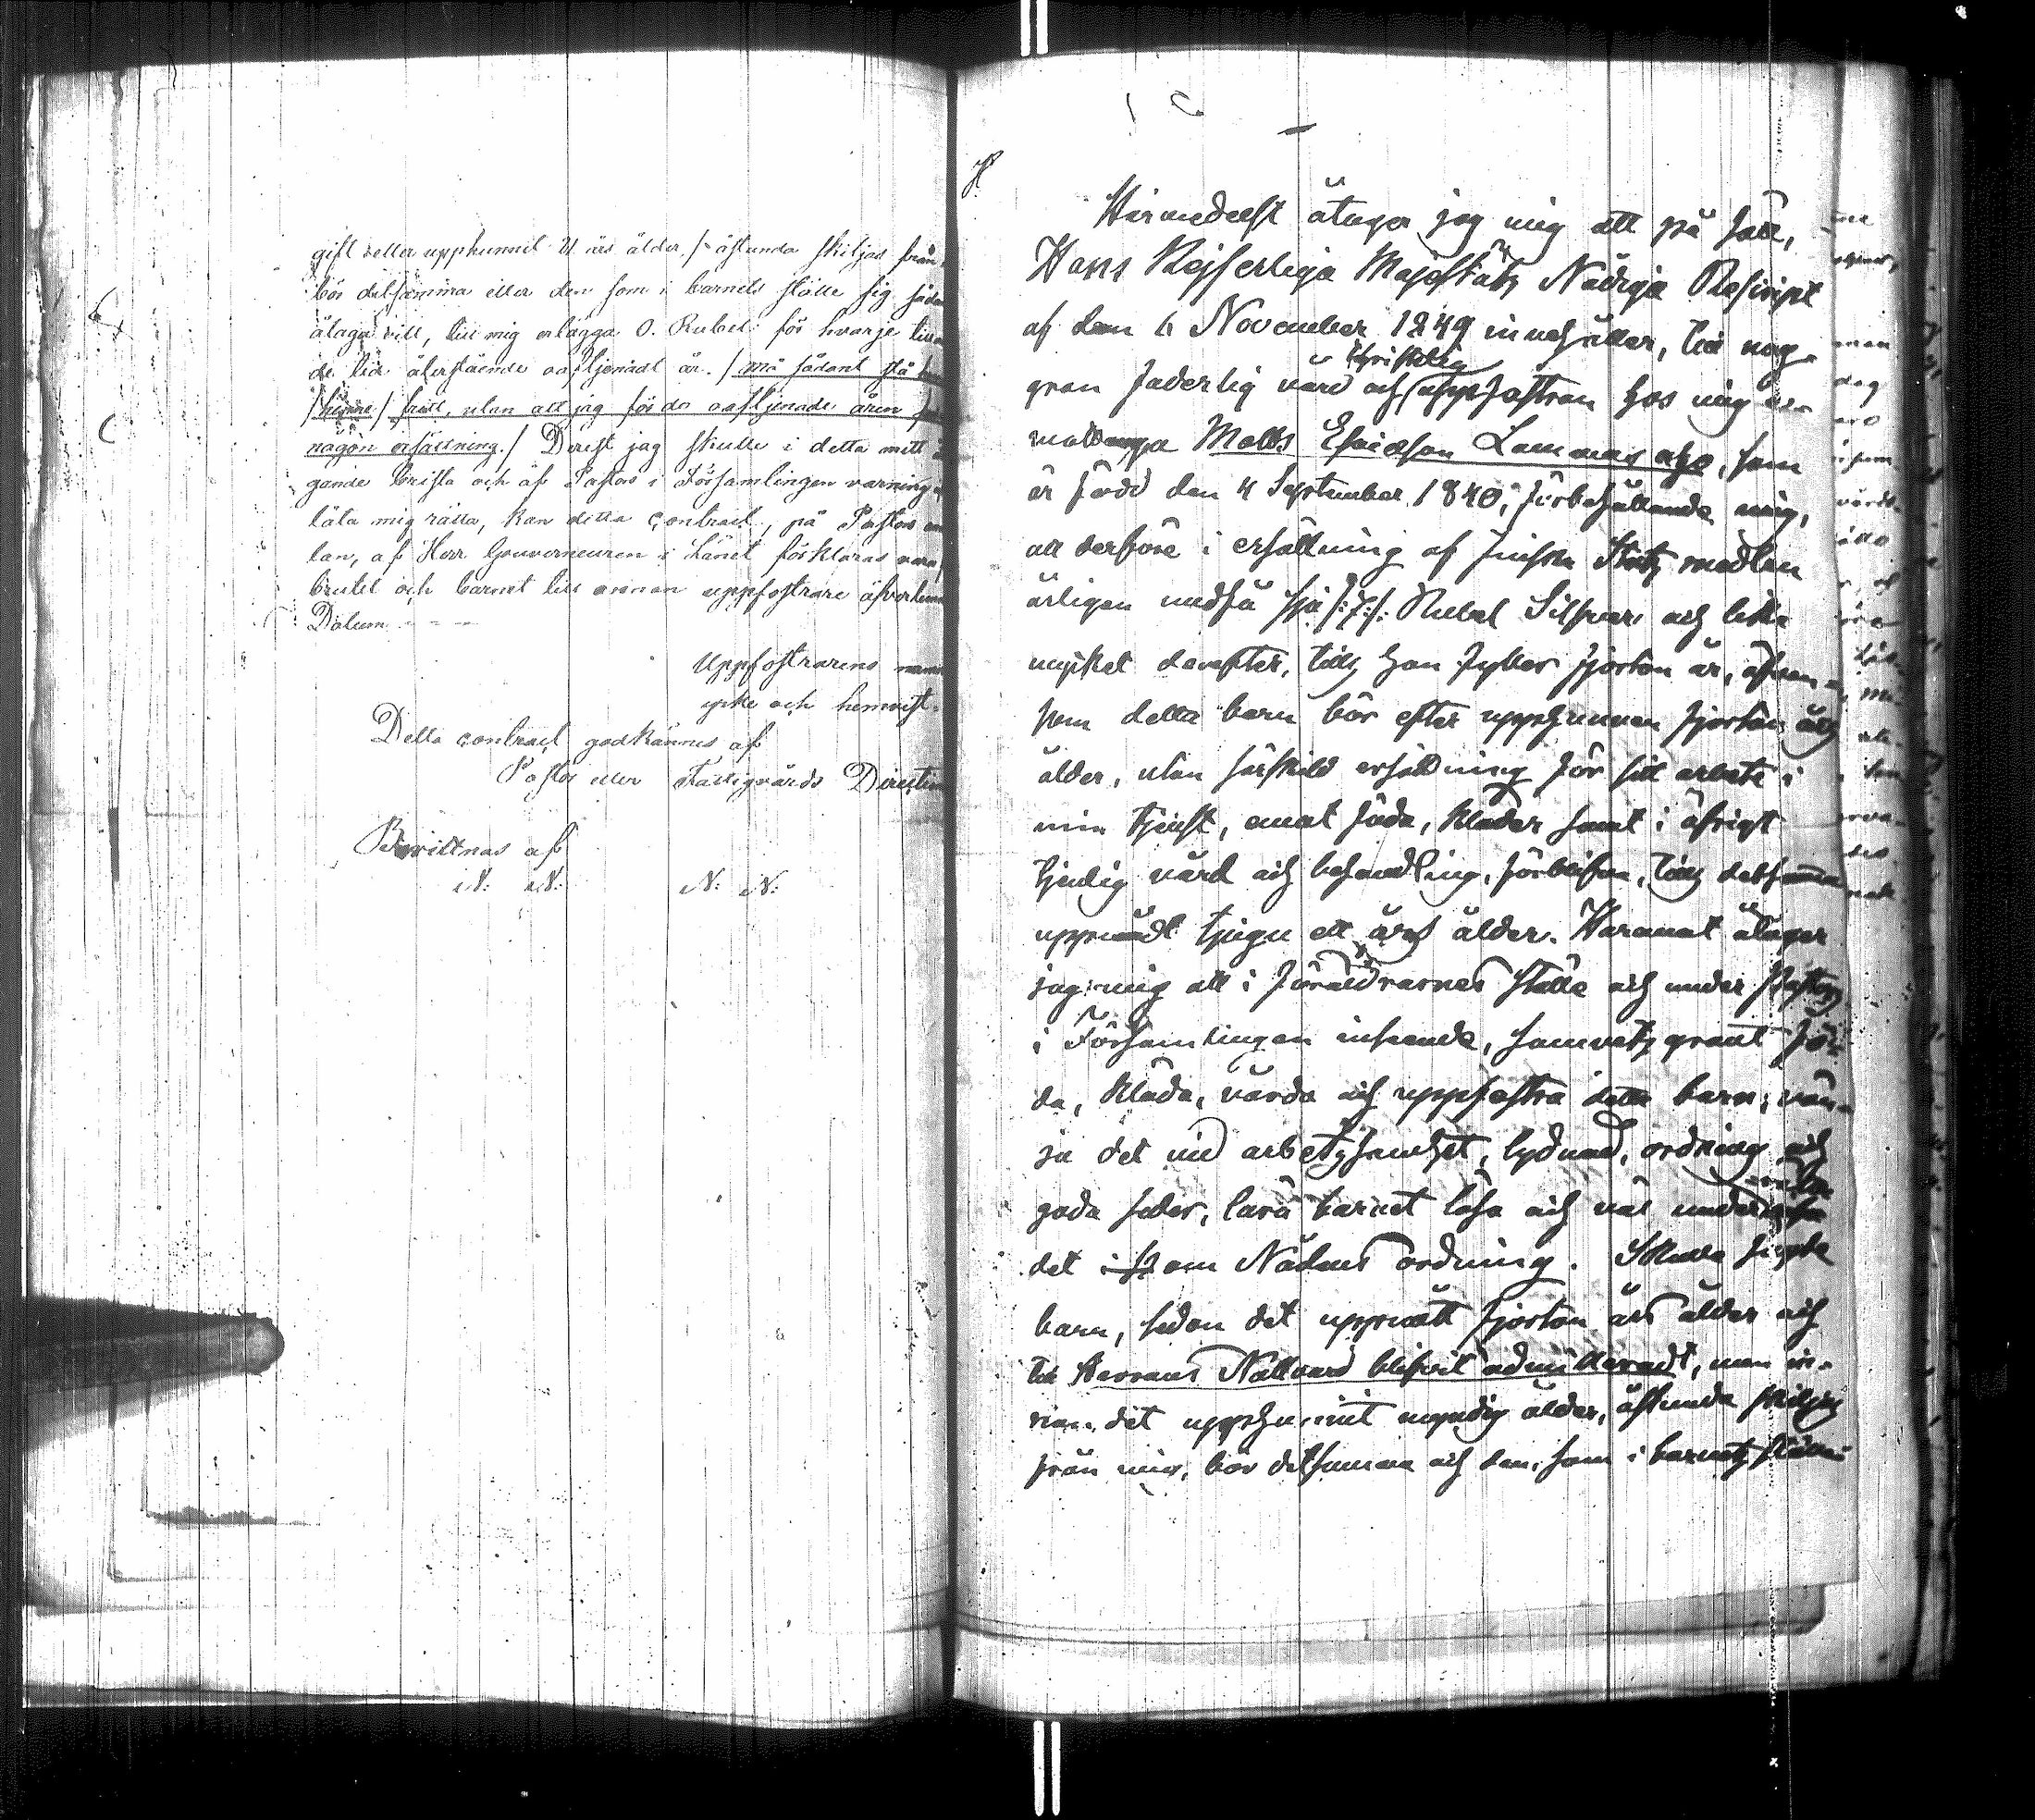 gift eller upphunnit 21 års ålder /: åstunda skiljas från
bör detsamma eller den som i barnets ställe sig sådant
åtaga vill, till mig erlägga O. Rubel för hvarje till
de tid återstående oaftjenadt år. / må sådant stå
/ henne / fritt, utan att jag för de oaftjenade åren
någon ersättning. / Derest jag skulle i detta mitt å-
gande brista och af Pastor i Församlingen varning
låta mig rätta, kan detta contract, på Pastors an-
lan, af Herr Gouverneuren i Länet förklaras vara
brutet och barnet till annan uppfostrare öfverlemnas
Datum - - -
Uppfostrarens namn
yrke och hemvist.
Detta contract godkännes af
Pastor eller Fattigvårds Direction
Bevittnas af
N: N: N: N:
Härmedelst åtager jag mig att på sätt,
Hans Kejserliga Majestäts Nådiga Rescript
af den 6 November 1849 innehåller, till nog-
gran faderlig vård och Christelig uppfostran hos mig
mottaga Matts Ericsson Lammasaho, som
är född den 4 September 1840, förbehållande mig,
att derföre i ersättning af Finska Statsmedlen
årligen undfå sju /:7:/ Rubel Silfver och lika
mycket derefter, tills han fyller fjorton år, äfven-
som detta barn bör efter upphunnen fjorton års
ålder, utan särskild ersättning för sitt arbete i
min tjenst, emot föda, kläder samt i öfrigt
tjenlig vård och behandling, förblifva, tills detsamma
uppnådt tjugu ett års ålder. Häremot åtager
jag mig att i föräldrarnes ställe och under Pastors
i Församlingen inseende, samvetsgrant fö-
da, kläda, vårda och uppfostra detta barn, vän-
ja det vid arbetsamhet, lydnad, ordning och
goda seder, lära barnet läsa och väl undervisa
det i om Nådens ordning. Skulle
barn, sedan det uppnått fjorton års ålder och
till Herrans Nattvard blifvit admitteradt, men in-
nan det upphunnit myndig ålder, åstunda skiljas
från mig, bör detsamma och den, som i barnets ställe